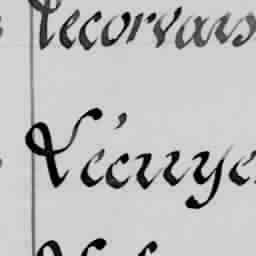 Lecorvais
L'écuye